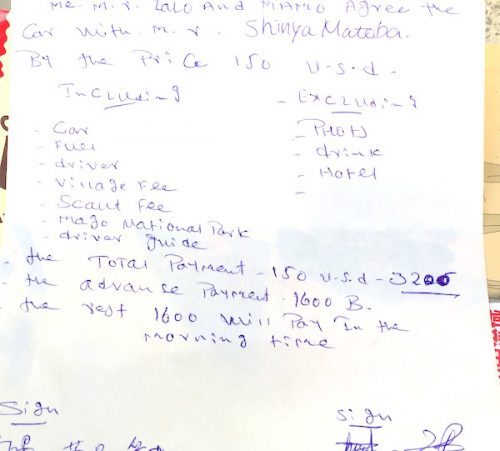 me. m.r. Lalo And MAMO Agree the
Car with. m.r. Shinya Matoba.
By the Price 150 U.S.d.
Including
- Car
- Fuel
- driver
- Village Fee
- Scout Fee
- Mago National Park
- driver guide
- Excluding
- Photo
- drink
- Hotel
-
- the Total Payment - 150 U.S.d - 3200
- the advanse Payment. 1600 B.
- the rest 1600 will Pay In the
morning time
Sign
Sign